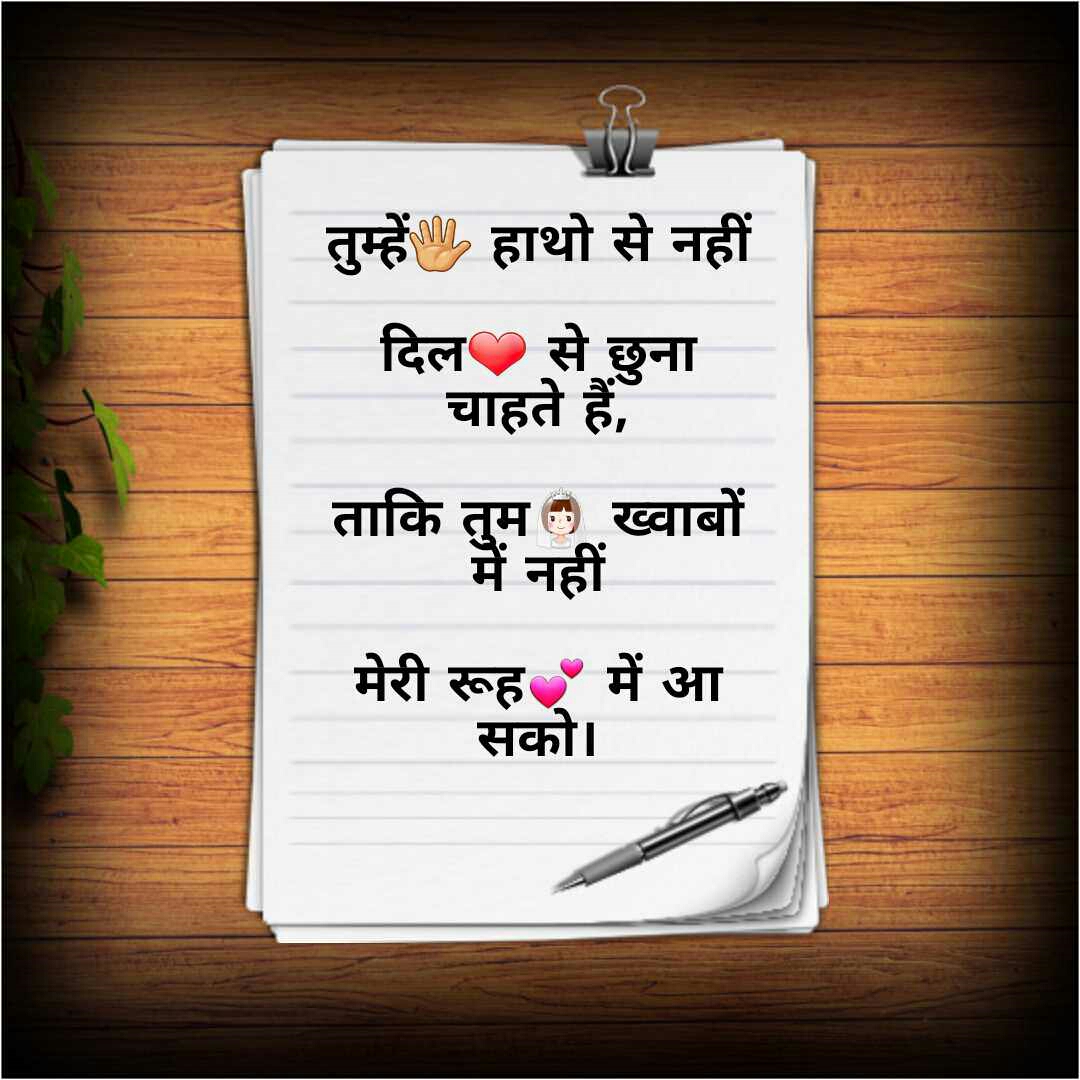 तुम्हें🖐 हाथो से नहीं
दिल❤ से छुना
चाहते हैं,
ताकि तुम👰 ख्वाबों
में नहीं
मेरी रूह💕 में आ
सको।